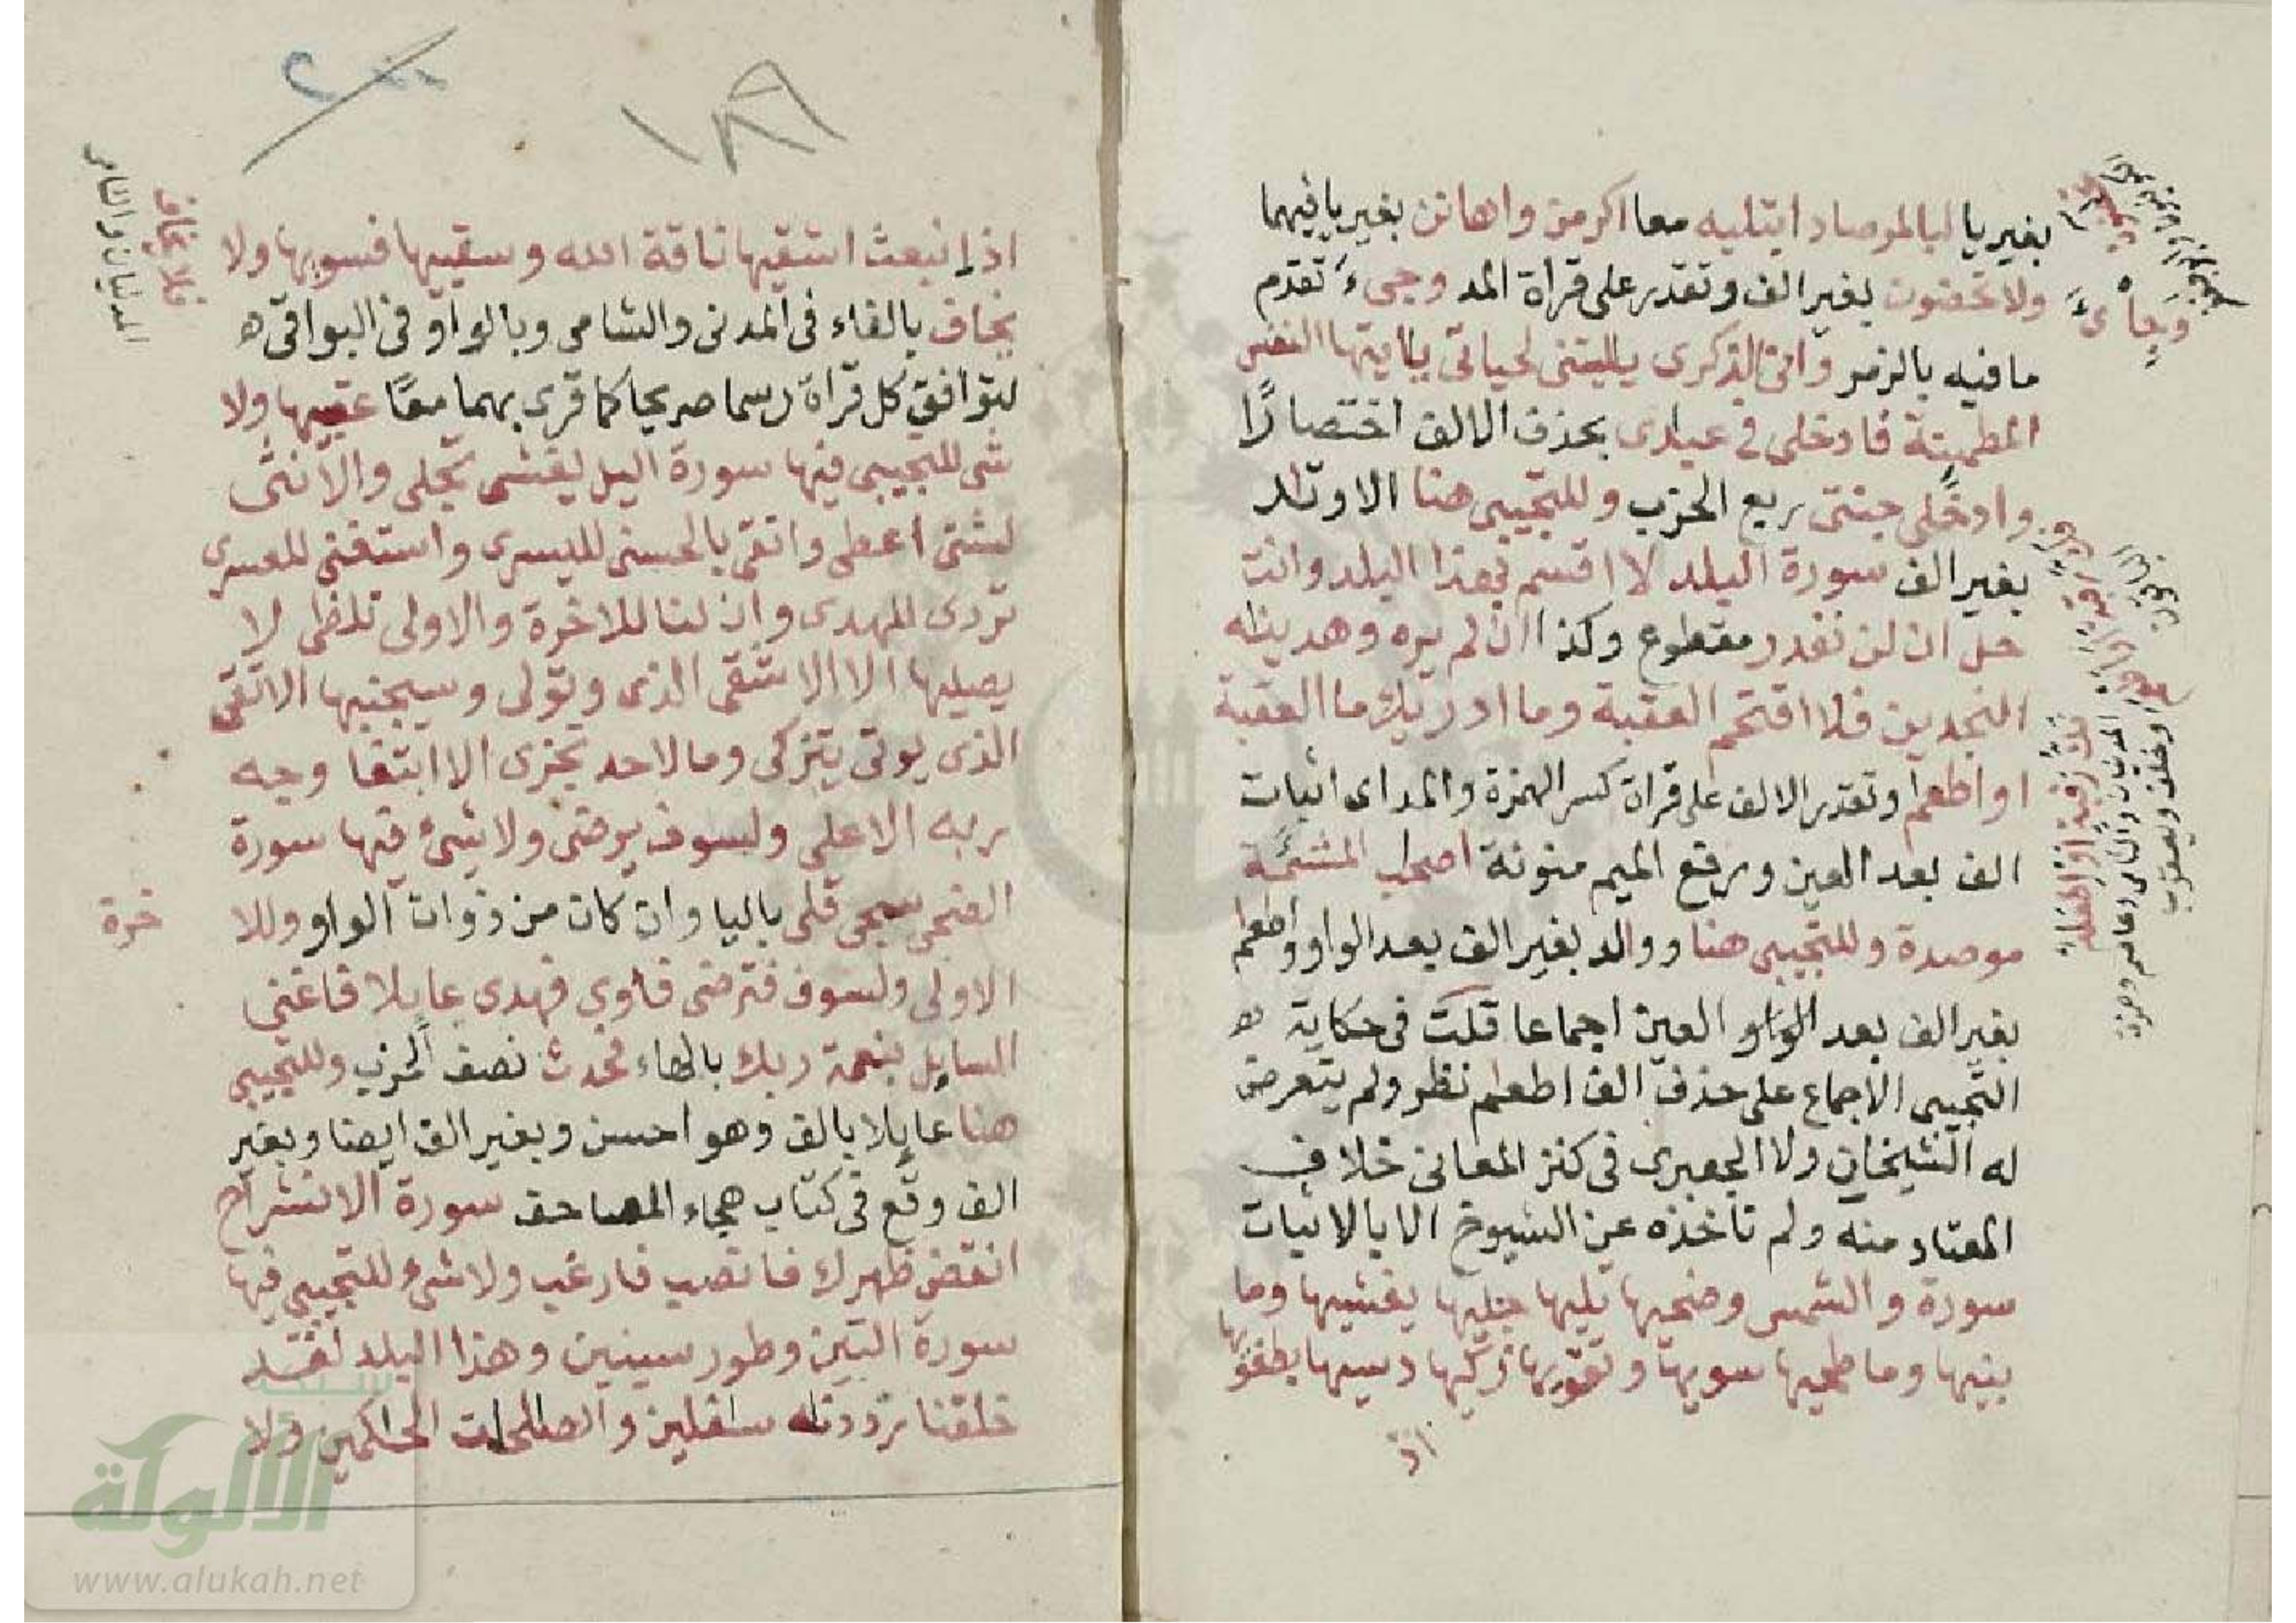 بغير يا لبالمرصاد ابتليه معا اكرمن واهانن بغير يا فيهما
ولا تحضون بغير الف وتقدر على قراة المد وجيء تقدم
ما فيه بالزمر وانى الذكرى يليتنى لحياتى ياايتها النفس
المطمينة فادخلى فى عبادى بحذف الالف اختصارًا
وادخلى جنتى ربع الحزب وللتجيبى هنا الاوتد
بغير الف سورة البلد لا اقسم بهذا البلد وانت
حل ان لن نقدر مقطوع وكذا ان لم يره وهدينه
النجدين فلا اقتحم العقبة وما ادريك ما العقبة
او اطعم وتقدر الالف على قراة كسر الهمزة والمد اى اثبات
الف بعد العين ورفع الميم منونة اصحب المشئمة
موصدة وللتجيبى هنا ووالد بغير الف بعد الواو واطعم
بغير الف بعد العين اجماعا قلت فى حكاية
التجيبى الاجماع على حذف الف اطعم نظر ولم يتعرض
له الشيخان ولا الجعبرى فى كنز المعانى خلاف
المعتاد منه ولم ناخذه عن الشيوخ الا بالاثبات
سورة والشمس وضحيها تليها جليها يغشيها وما
بنيها وما طحيها سويها وتقويها زكيها دسيها بطغويها
اذ
وجاىء
فك رقبة او اطعم
المدنيان والشامى وعاصم وحمزة
وخلف ويعقوب
الباقون
١٨٩
٢٠٠
اذ انبعث اشقيها ناقة الله وسقييها فسويها ولا
يخاف بالفاء فى المدنى والشامى وبالواو فى البواقى ه
ليوافق كل قراة رسما صريحا كما قرى بهما معًا عقبيها ولا
شى للتجيبى فيها سورة اليل يغشى تجلى والانثى
لشتى اعطى واتقى بالحسنى لليسرى واستغنى للعسرى
تردى للهدى وان لنا للاخرة والاولى تلظى لا
يصليها الا الاشقى الذى وتولى وسيجنبها الاتقى
الذى يوتى يتزكى وما لاحد تجزى الا ابتغا وجه
ربه الاعلى ولسوف يرضى ولا شىء فيها سورة
الضحى سجى قلى باليا وان كان من ذوات الواو وللا
الاولى ولسوف فترضى فاوى فهدى عايلا فاغنى
السايل بنعمة ربك بالهاء فحدث نصف الحزب وللتجيبى
هنا عايلا بالف وهو احسن وبغير الف ايضا وبغير
الف وقع فى كتاب هجاء المصاحف سورة الانشراح
انقض ظهرك فانصب فارغب ولا شىء للتجيبى فيها
سورة التين وطور سينين وهذا البلد لقد
خلقنا رددنه سفلين والصلحت الحكمين ولا
فلا يخاف
المدنيان والشامى
خرة
شبكة
الألوكة
www.alukah.net